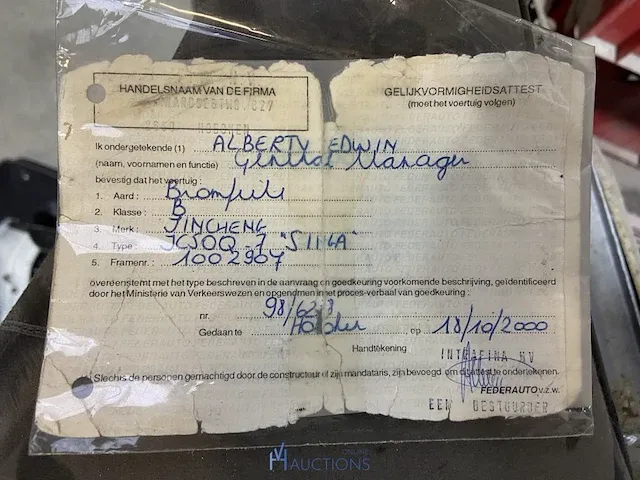 HANDELSNAAM VAN DE FIRMA
GELIJKVORMIGHEIDSATTEST
(moet het voertuig volgen)
Ik ondergetekende (1) ALBERTY EDWIN
(naam, voornamen en functie) General Manager
bevestig dat het voertuig :
1. Aard : Bromfiets
2. Klasse : B
3. Merk : JINCHENG
4. Type :
5. Framenr. : 1002907
overeenstemt met het type beschreven in de aanvraag en goedkeuring voorkomende beschrijving, geïdentificeerd
door het Ministerie van Verkeerswezen en opgenomen in het proces-verbaal van goedkeuring :
nr.
Gedaan te op 18/10/2000
Handtekening
Slechts de personen gemachtigd door de constructeur of zijn mandataris, zijn bevoegd om dit attest te ondertekenen.
FEDERAUTO v.z.w.
EEN BESTUURDER
ONLINE
AUCTIONS